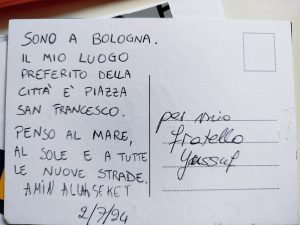 SONO A BOLOGNA.
IL MIO LUOGO
PREFERITO DELLA
CITTA' E' PIAZZA
SAN FRANCESCO.
PENSO AL MARE,
AL SOLE E A TUTTE
LE NUOVE STRADE.
AMIN
2/7/24
per mio
fratello
Yussuf